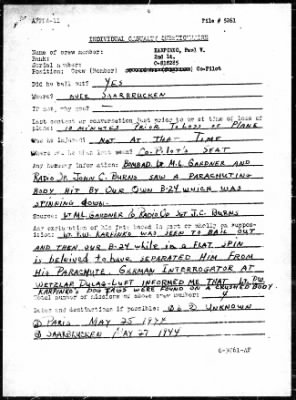 AFPPA-11 File # 5261
INDIVIDUAL CASUALTY QUESTIONNAIRE
Name of crew member: KARFINKO, Paul W.
Rank: 2nd Lt,
Serial number:
Position: Crew (Bomber) Co-Pilot
Did he bail out? YES
Where? OVER SAARBRUCKEN
If not, why not? —
Last contact or conversation just prior to or at time of loss of
plane: 10 MINUTES PRIOR TO LOSS OF PLANE
Was he injured? NOT AT THE TIME
Where was he when last seen? CO-PILOT'S SEAT
Any hearsay information: BOMBAD. LT. M.L. GARDNER AND
RADIO Sgt. JOHN C. BURNS SAW A PARACHUTING
BODY HIT BY OUR OWN B-24 WHICH WAS
SPINNING DOWN.
Source: LT M.L. GARDNER & RADIO SGT J.C. BURNS
Any explanation of his fate based in part or wholly on supposition:
LT. P.W. KARFINKO WAS SEEN TO BAIL OUT
AND THEN OUR B-24 WHILE IN A FLAT SPIN
IS BELEIVED TO HAVE SEPARATED HIM FROM
HIS PARACHUTE. GERMAN INTERROGATOR AT
WETZLAR DULAG-LUFT INFORMED ME THAT LT. P.W.
KARFINKO'S DOG TAGS WERE FOUND ON A CRUSHED BODY.
Total number of missions of above crew member: 4
Dates and destinations if possible: UNKNOWN
PARIS MAY 25 1944
SAARBRUCKEN MAY 27 1944